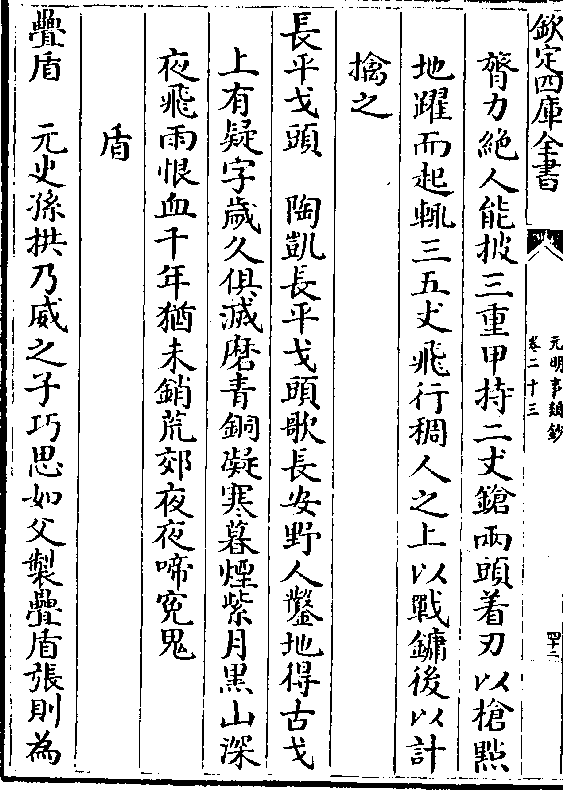 欽定四庫全書
元明事類鈔
卷二十三
四十二
膂力絶人能披三重甲持二丈鎗兩頭着刃以槍㸃
地躍而起輒三五丈飛行稠人之上以戰鏞後以計
擒之
長平戈頭 陶凱長平戈頭歌長安野人鑿地得古戈
上有疑字歲久俱滅磨青銅凝寒暮煙紫月黒山深
夜飛雨恨血千年猶未銷荒郊夜夜啼寃鬼
盾
疊盾 元史孫拱乃威之子巧思如父製疊盾張則為